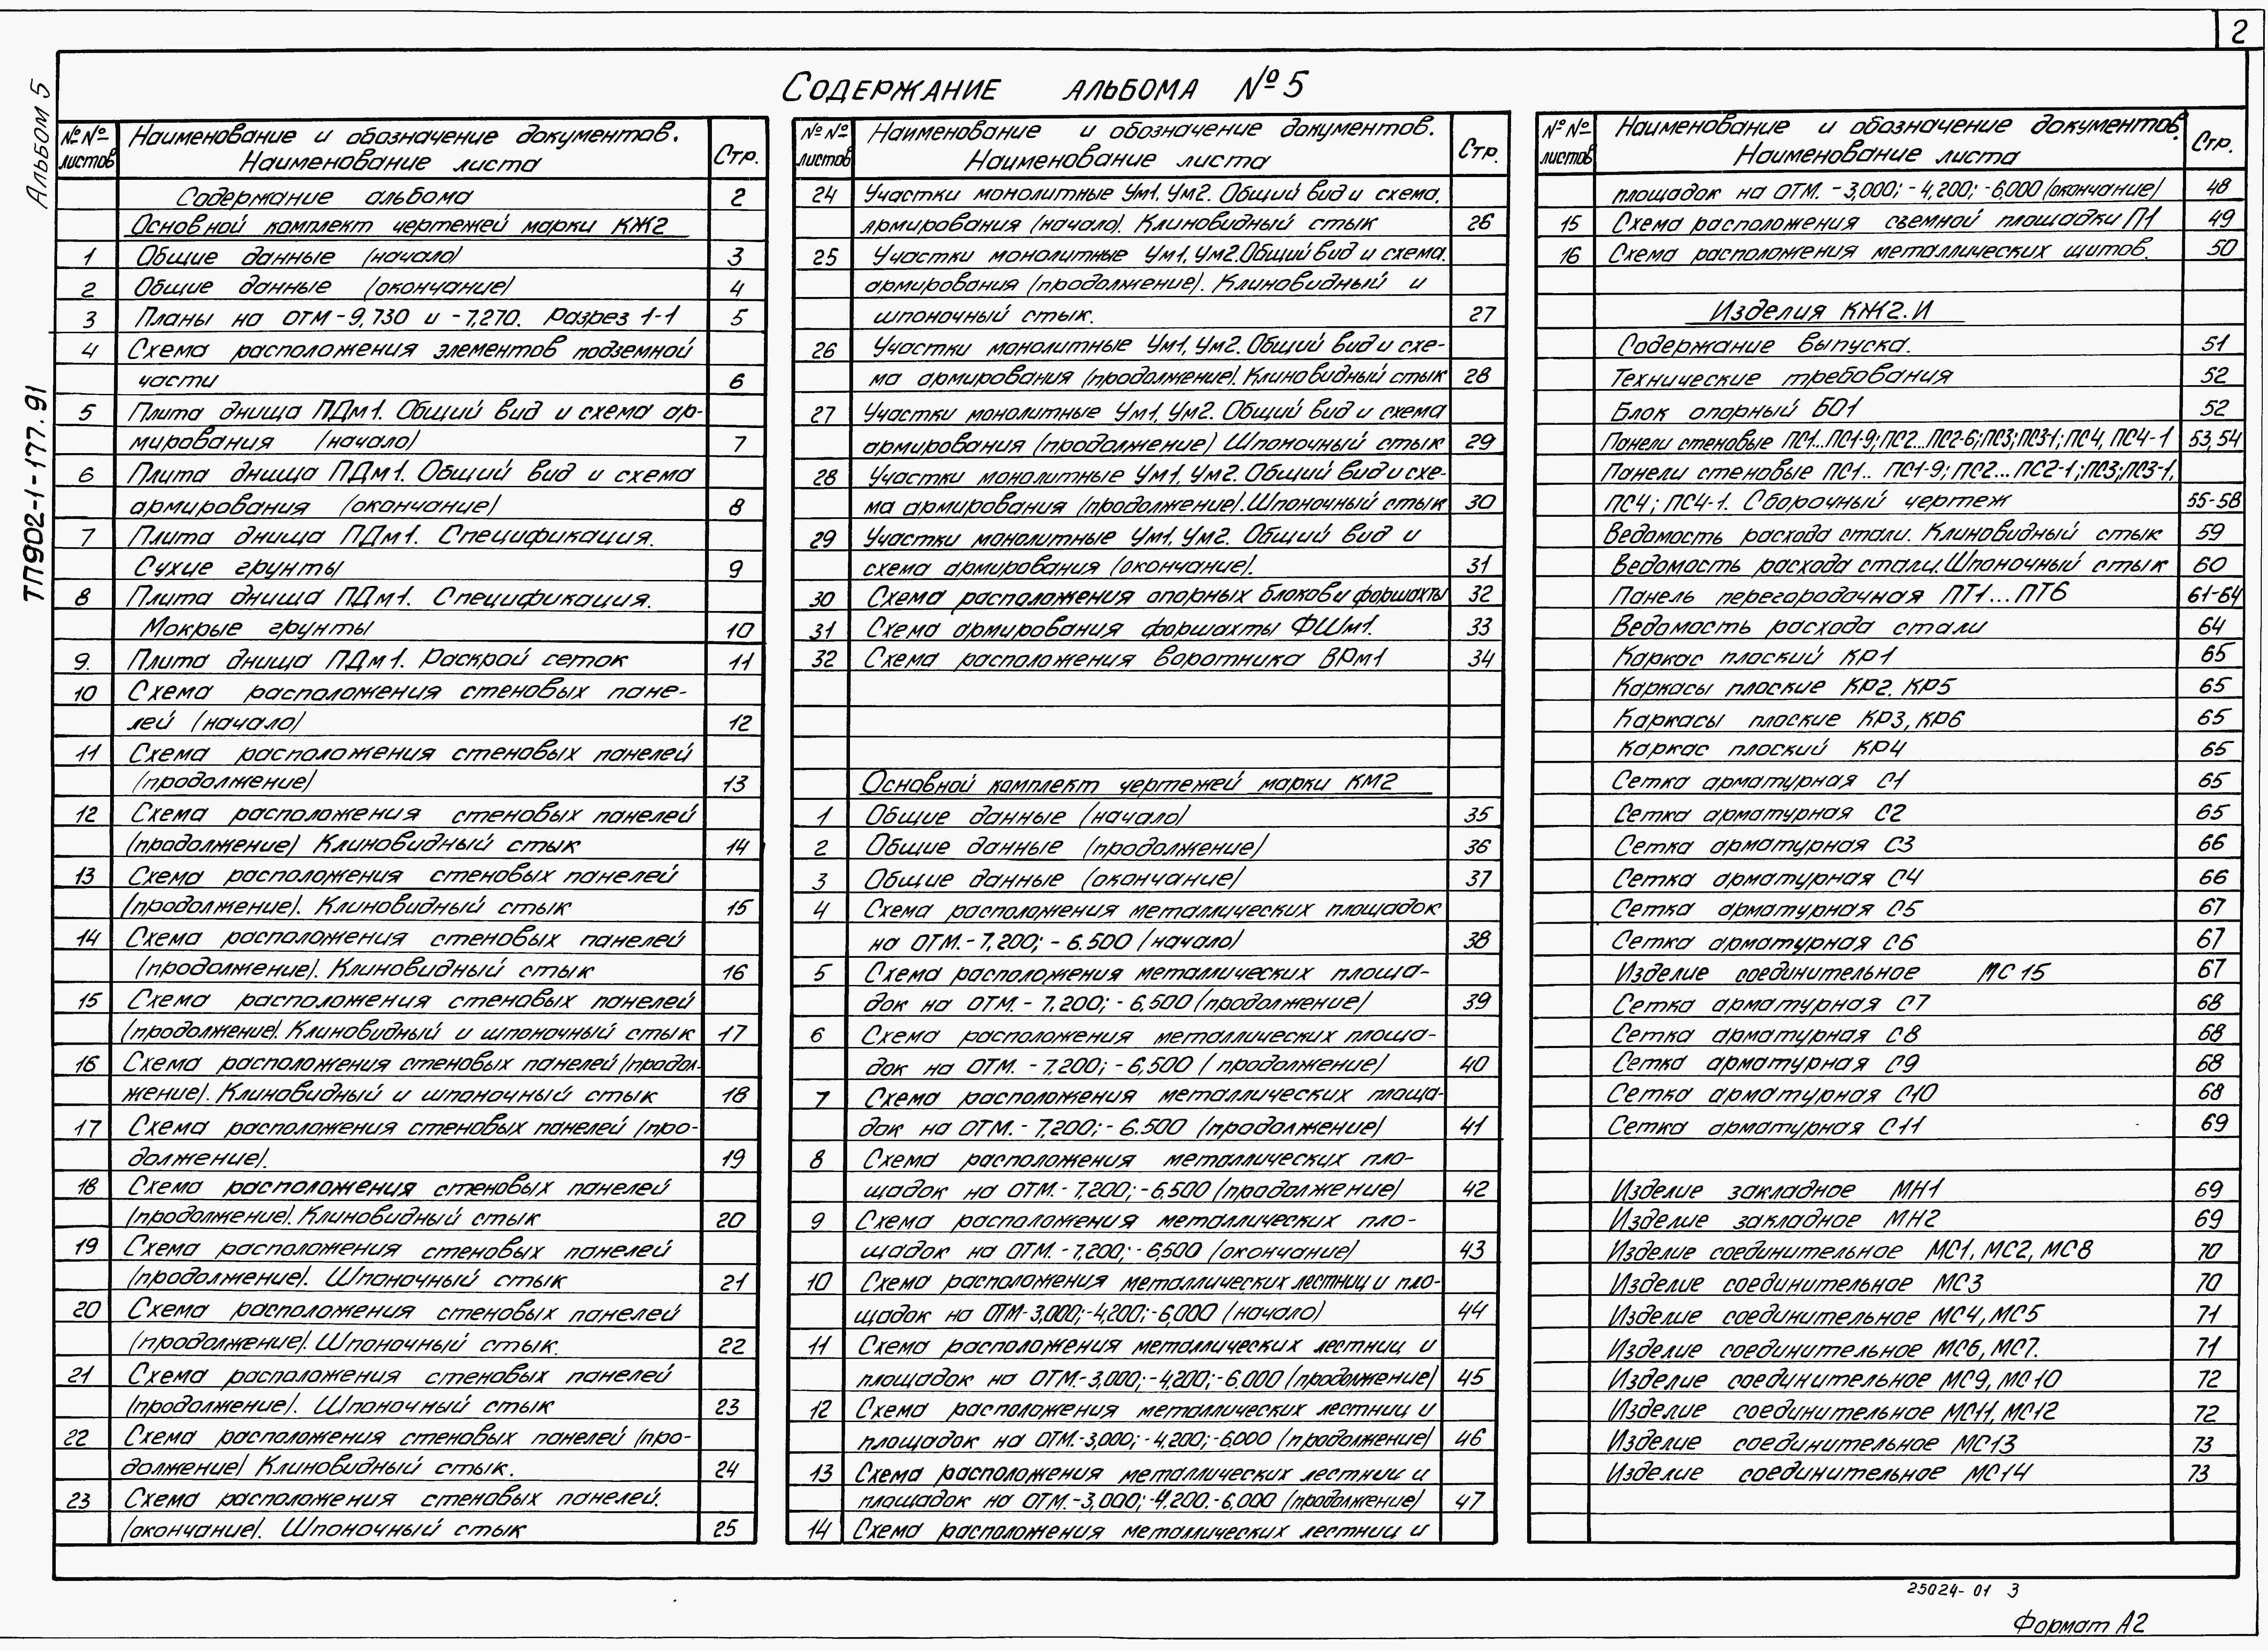 2
Содержание альбома №5
Альбом 5
ТП902-1-177.91
№№ листов
Наименование и обозначение документов. Наименование листа
Стр.
Содержание альбома 2
Основной комплект чертежей марки КЖ2
1 Общие данные (начало) 3
2 Общие данные (окончание) 4
3 Планы на отм -9,730 и -7,270. Разрез 1-1 5
4 Схема расположения элементов подземной
части 6
5 Плита днища ПДм1. Общий вид и схема ар-
мирования (начало) 7
6 Плита днища ПДм1. Общий вид и схема
армирования (окончание) 8
7 Плита днища ПДм1. Спецификация.
Сухие грунты 9
8 Плита днища ПДм1. Спецификация.
Мокрые грунты 10
9. Плита днища ПДм1. Раскрой сеток 11
10 Схема расположения стеновых пане-
лей (начало) 12
11 Схема расположения стеновых панелей
(продолжение) 13
12 Схема расположения стеновых панелей
(продолжение) Клиновидный стык 14
13 Схема расположения стеновых панелей
(продолжение). Клиновидный стык 15
14 Схема расположения стеновых панелей
(продолжение). Клиновидный стык 16
15 Схема расположения стеновых панелей
(продолжение). Клиновидный и шпоночный стык 17
16 Схема расположения стеновых панелей (продол-
жение). Клиновидный и шпоночный стык 18
17 Схема расположения стеновых панелей (про-
должение). 19
18 Схема расположения стеновых панелей
(продолжение). Клиновидный стык 20
19 Схема расположения стеновых панелей
(продолжение). Шпоночный стык 21
20 Схема расположения стеновых панелей
(продолжение). Шпоночный стык. 22
21 Схема расположения стеновых панелей
(продолжение). Шпоночный стык 23
22 Схема расположения стеновых панелей (про-
должение) Клиновидный стык. 24
23 Схема расположения стеновых панелей.
(окончание). Шпоночный стык 25
№№ листов
Наименование и обозначение документов. Наименование листа
Стр.
24 Участки монолитные Ум1, Ум2. Общий вид и схема.
армирования (начало). Клиновидный стык 26
25 Участки монолитные Ум1, Ум2. Общий вид и схема.
армирования (продолжение). Клиновидный и
шпоночный стык. 27
26 Участки монолитные Ум1, Ум2. Общий вид и схе-
ма армирования (продолжение). Клиновидный стык 28
27 Участки монолитные Ум1, Ум2. Общий вид и схема
армирования (продолжение) Шпоночный стык 29
28 Участки монолитные Ум1, Ум2. Общий вид и схе-
ма армирования (продолжение). Шпоночный стык 30
29 Участки монолитные Ум1, Ум2. Общий вид и
схема армирования (окончание). 31
30 Схема расположения опорных блоков и форшахты 32
31 Схема армирования форшахты ФШм1. 33
32 Схема расположения воротника ВРм1 34
Основной комплект чертежей марки КМ2
1 Общие данные (начало) 35
2 Общие данные (продолжение) 36
3 Общие данные (окончание) 37
4 Схема расположения металлических площадок
на отм. -7,200; -6.500 (начало) 38
5 Схема расположения металлических площа-
док на отм. -7,200; -6,500 (продолжение) 39
6 Схема расположения металлических площа-
док на отм. -7,200; -6,500 (продолжение) 40
7 Схема расположения металлических площа-
док на отм. -7,200; -6.500 (продолжение) 41
8 Схема расположения металлических пло-
щадок на отм. -7,200; -6,500 (продолжение) 42
9 Схема расположения металлических пло-
щадок на отм. -7,200; -6,500 (окончание) 43
10 Схема расположения металлических лестниц и пло-
щадок на отм -3,000; -4,200; -6,000 (начало) 44
11 Схема расположения металлических лестниц и
площадок на отм. -3,000; -4,200; -6,000 (продолжение) 45
12 Схема расположения металлических лестниц и
площадок на отм. -3,000; -4,200; -6,000 (продолжение) 46
13 Схема расположения металлических лестниц и
площадок на отм. -3,000; -4,200. -6,000 (продолжение) 47
14 Схема расположения металлических лестниц и
№№ листов
Наименование и обозначение документов. Наименование листа
Стр.
площадок на отм. -3,000; -4,200; -6.000 (окончание) 48
15 Схема расположения съемной площадки П1 49
16 Схема расположения металлических щитов. 50
Изделия КЖ2.И
Содержание выпуска. 51
Технические требования 52
Блок опорный БО1 52
Панели стеновые ПС1...ПС1-9; ПС2...ПС2-6; ПС3; ПС3-1; ПС4, ПС4-1 53,54
Панели стеновые ПС1.. ПС1-9; ПС2...ПС2-1; ПС3; ПС3-1,
ПС4; ПС4-1. Сборочный чертеж 55-58
Ведомость расхода стали. Клиновидный стык 59
Ведомость расхода стали. Шпоночный стык 60
Панель перегородочная ПТ1...ПТ6 61-64
Ведомость расхода стали 64
Каркас плоский КР1 65
Каркасы плоские КР2. КР5 65
Каркасы плоские КР3, КР6 65
Каркас плоский КР4 65
Сетка арматурная С1 65
Сетка арматурная С2 65
Сетка арматурная С3 66
Сетка арматурная С4 66
Сетка арматурная С5 67
Сетка арматурная С6 67
Изделие соединительное МС15 67
Сетка арматурная С7 68
Сетка арматурная С8 68
Сетка арматурная С9 68
Сетка арматурная С10 68
Сетка арматурная С11 69
Изделие закладное МН1 69
Изделие закладное МН2 69
Изделие соединительное МС1, МС2, МС8 70
Изделие соединительное МС3 70
Изделие соединительное МС4, МС5 71
Изделие соединительное МС6, МС7. 71
Изделие соединительное МС9, МС10 72
Изделие соединительное МС11, МС12 72
Изделие соединительное МС13 73
Изделие соединительное МС14 73
25024-01 3
Формат А2